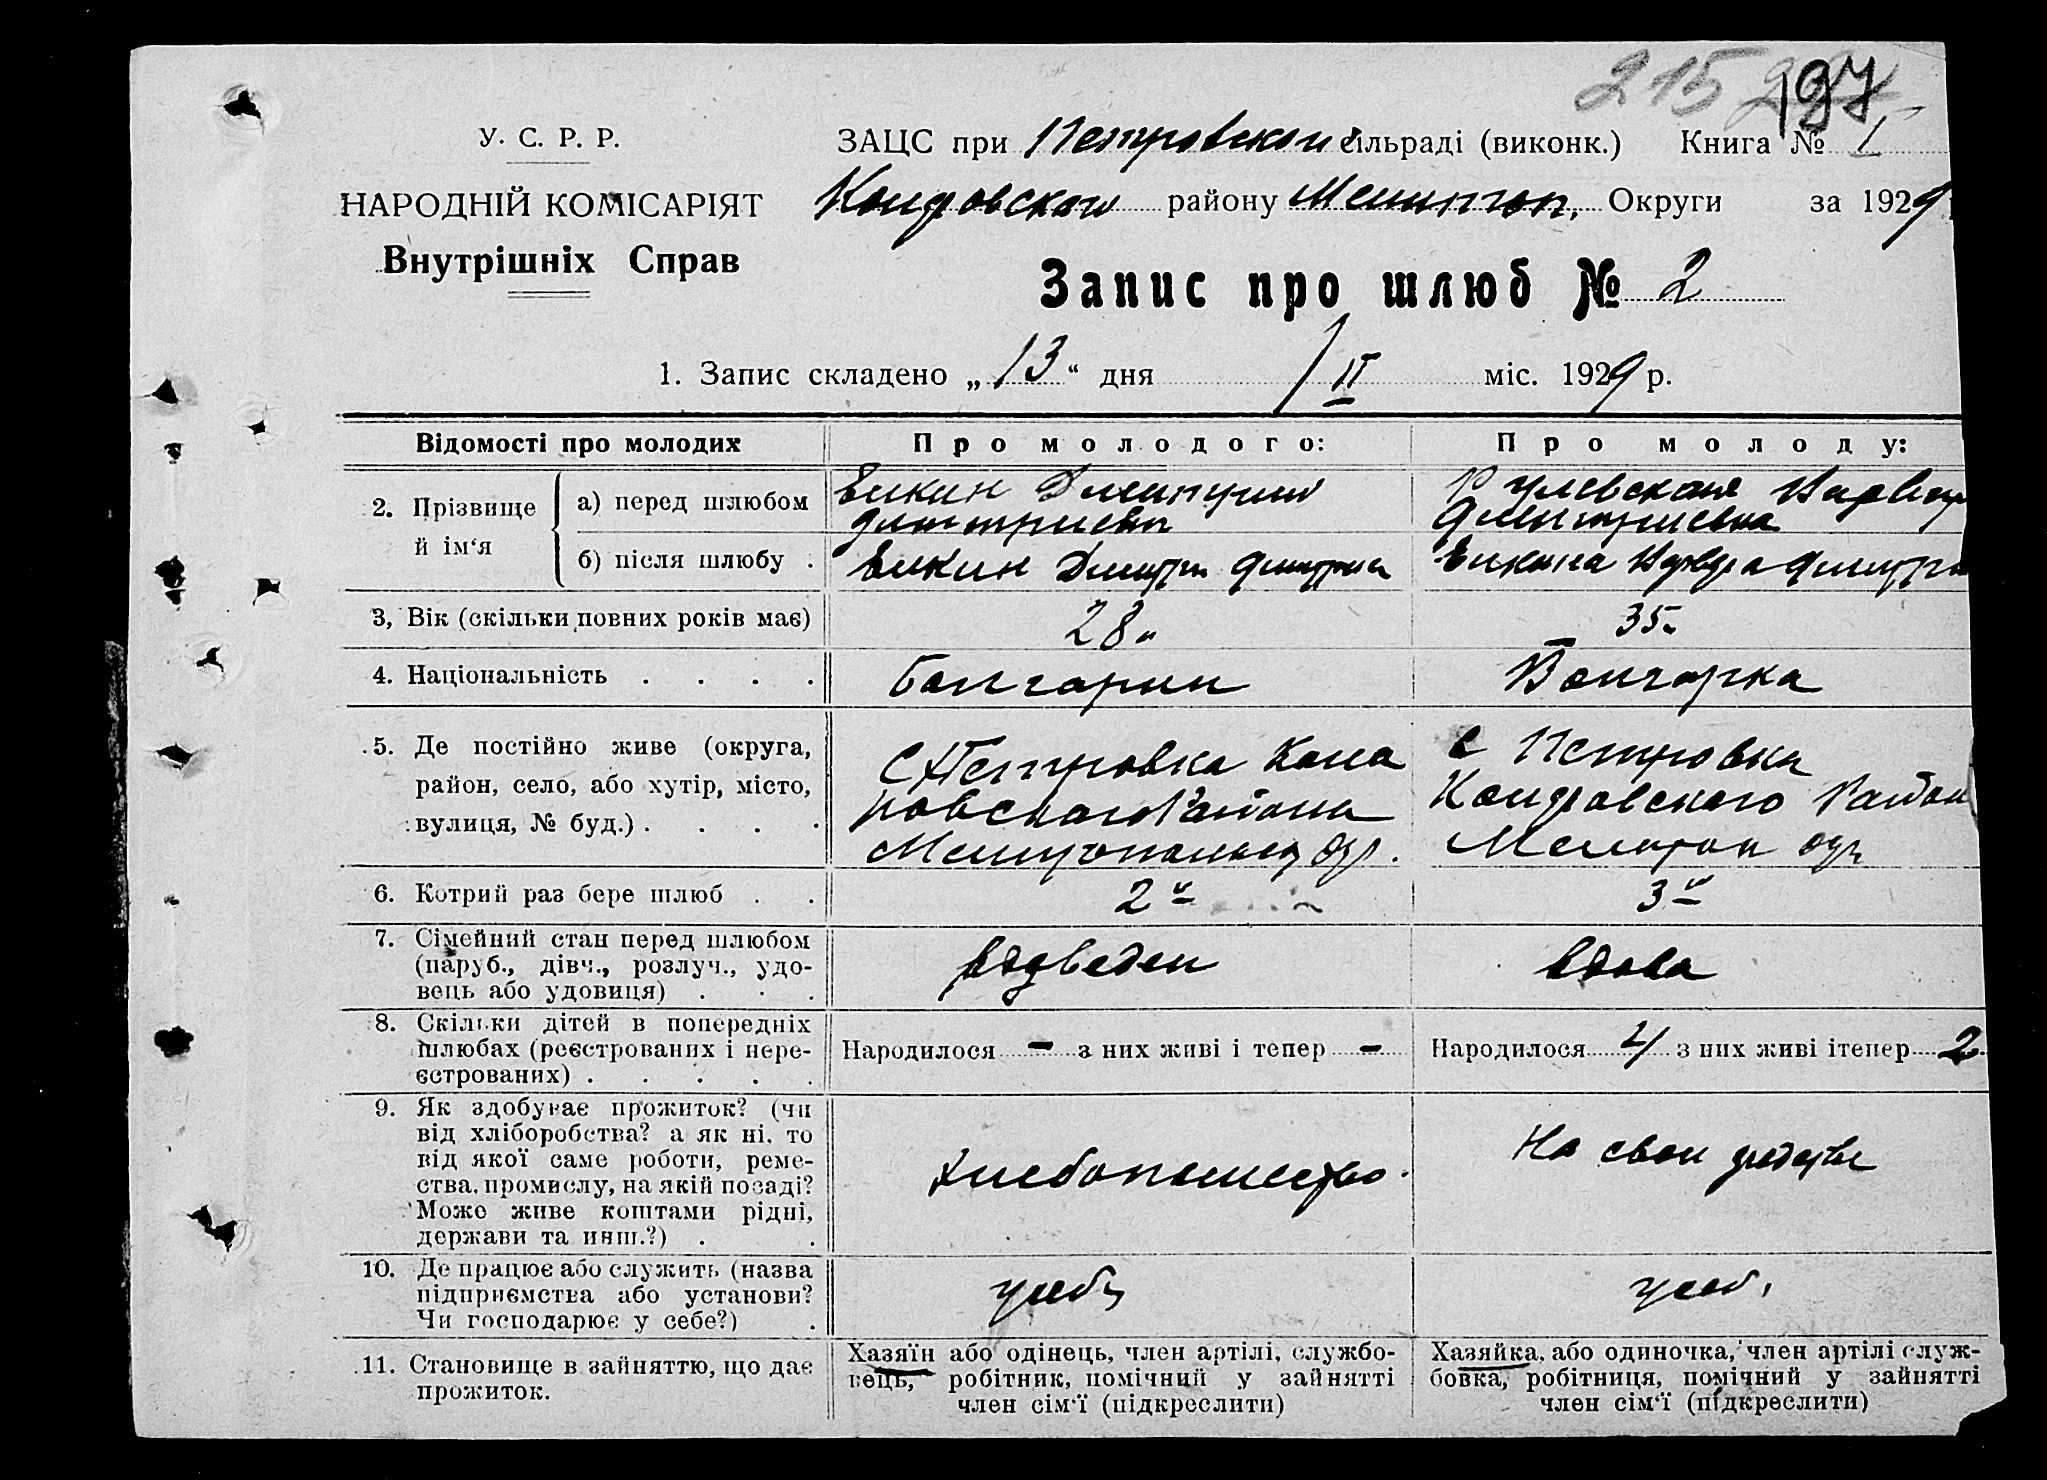 215 197
У. С. Р. Р.
НАРОДНІЙ КОМІСАРІЯТ
Внутрішніх Справ
ЗАЦС при Петровской сільраді (виконк.) Книга № I
района Мелитоп. Округи за 1929
Запис про шлюб № 2
1. Запис складено „13“ дня II міс. 1929 р.
Відомості про молодих
Про молодого:
Про молоду:
2. Прізвище й ім‘я
а) перед шлюбом
Дмитрий
Дмитриевна
б) після шлюбу .
3, Вік (скільки повних років має)
28
35
4. Національність . . . .
болгарин
Болгарка
5. Де постійно живе (округа,
район, село, або хутір, місто,
вулиця, № буд.) . . . .
С Петровка
района
Мелитопольск окр.
с Петровка
Район
Мелитоп окр
6. Котрий раз бере шлюб . .
2й
3й
7. Сімейний стан перед шлюбом
(паруб., дівч., розлуч., удо-
вець або удовиця) . . .
вдова
8. Скільки дітей в попередніх
шлюбах (реєстрованих і нере-
єстрованих) . . . . .
Народилося - з них живі і тепер -
Народилося 4 з них живі ітепер 2
9. Як здобуває прожиток? (чи
від хліборобства? а як ні, то
від якої саме роботи, реме-
ства, промислу, на якій посаді?
Може живе коштами рідні,
держави та инш.?) . .
Хлебопашество.
На свои
10. Де працює або служить (назва
підприємства або установи?
Чи господарює у себе?) .
11. Становище в зайняттю, що дає
прожиток.
Хазяїн або одінець, член артілі, службо-
вець, робітник, помічний у зайнятті
член сім‘ї (підкреслити)
Хазяйка, або одиночка, член артілі служ-
бовка, робітниця, помічний у зайнятті
член сім‘ї (підкреслити)